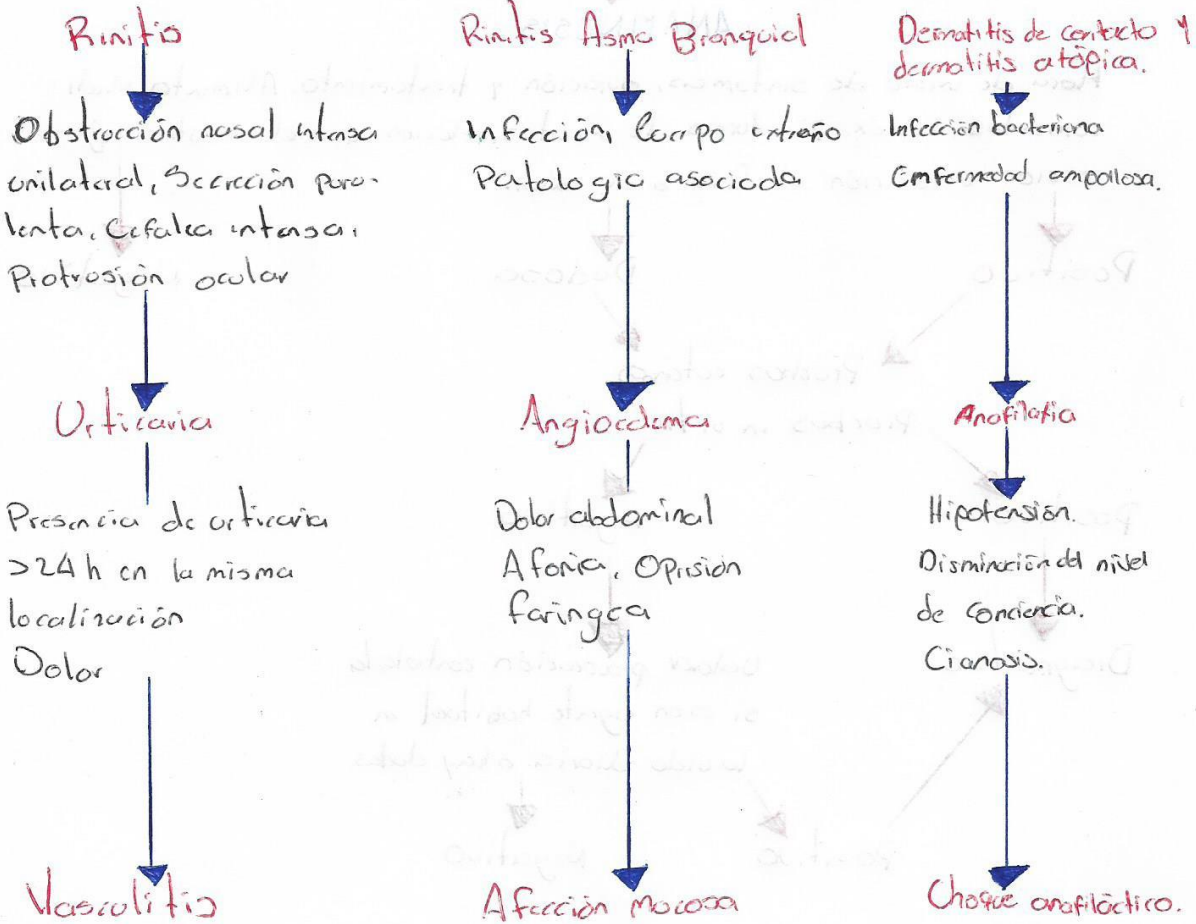 Rinitis
Obstrucción nasal intensa
unilateral, Secreción puru-
lenta, Cefalea intensa,
Protrusión ocular
Urticaria
Presencia de urticaria
>24 h en la misma
localización
Dolor
Vasculitis
Rinitis Asma Bronquial
Infección, Cuerpo extraño
Patologia asociada
Angioedema
Dolor abdominal
Afonia, Opresión
faringea
Afección Mucosa
Dermatitis de contacto y
dermatitis atópica.
Infección bacteriana
Enfermedad ampollosa.
Anafilafia
Hipotensión.
Disminución del nivel
de conciencia.
Cianosis.
Choque anafiláctico.